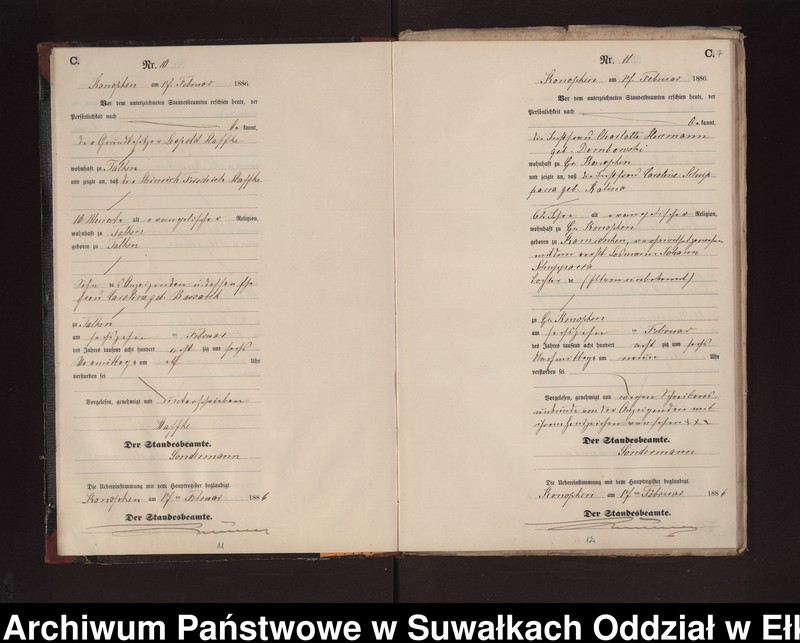 C.
Nr. 10
Konophen am 17. Februar 1886.
Vor dem unterzeichneten Standesbeamten erschien heute, der
Persönlichkeit nach
be kannt,
der Grundbesitzer Leopold
wohnhaft zu Talken
und zeigte an, daß der Heinrich Friedrich
10 Monate alt evangelischer Religion,
wohnhaft zu Talken
geboren zu Talken
Sohn des Anzeigenden u dessen Ehe
frau Caroline geb.
zu Talken
am sechszehn ten Februar
des Jahres tausend acht hundert acht zig und sechs
Vormittags um elf Uhr
verstorben sei
Vorgelesen, genehmigt und unterschrieben
Der Standesbeamte.
Sondermann
Die Uebereinstimmung mit dem Hauptregister beglaubigt.
Konophen am 17 ten Februar 1886
Der Standesbeamte.
11
C. 7
Nr. 11
Konophen am 17. Februar 1886.
Vor dem unterzeichneten Standesbeamten erschien heute, der
Persönlichkeit nach
be kannt,
die Charlotte Herrmann
geb. Dombowski
wohnhaft zu Gr. Konophen
und zeigte an, daß die Caroline
geb. Kalina
Jahre alt evangelischer Religion,
wohnhaft zu Gr. Konophen
geboren zu verheirathet gewesen
mit dem Losmann Johann
Tochter u (Eltern unbekannt)
zu Gr. Konophen
am sechszehn ten Februar
des Jahres tausend acht hundert acht zig und sechs
Nachmittags um neun Uhr
verstorben sei
Vorgelesen, genehmigt und wegen Schreibens
unkunde von der Anzeigenden mit
ihrem Handzeichen versehen xxx
Der Standesbeamte.
Sondermann
Die Uebereinstimmung mit dem Hauptregister beglaubigt.
Konophen am 17 ten Februar 1886
Der Standesbeamte.
12
Archiwum Państwowe w Suwałkach Oddział w Eł